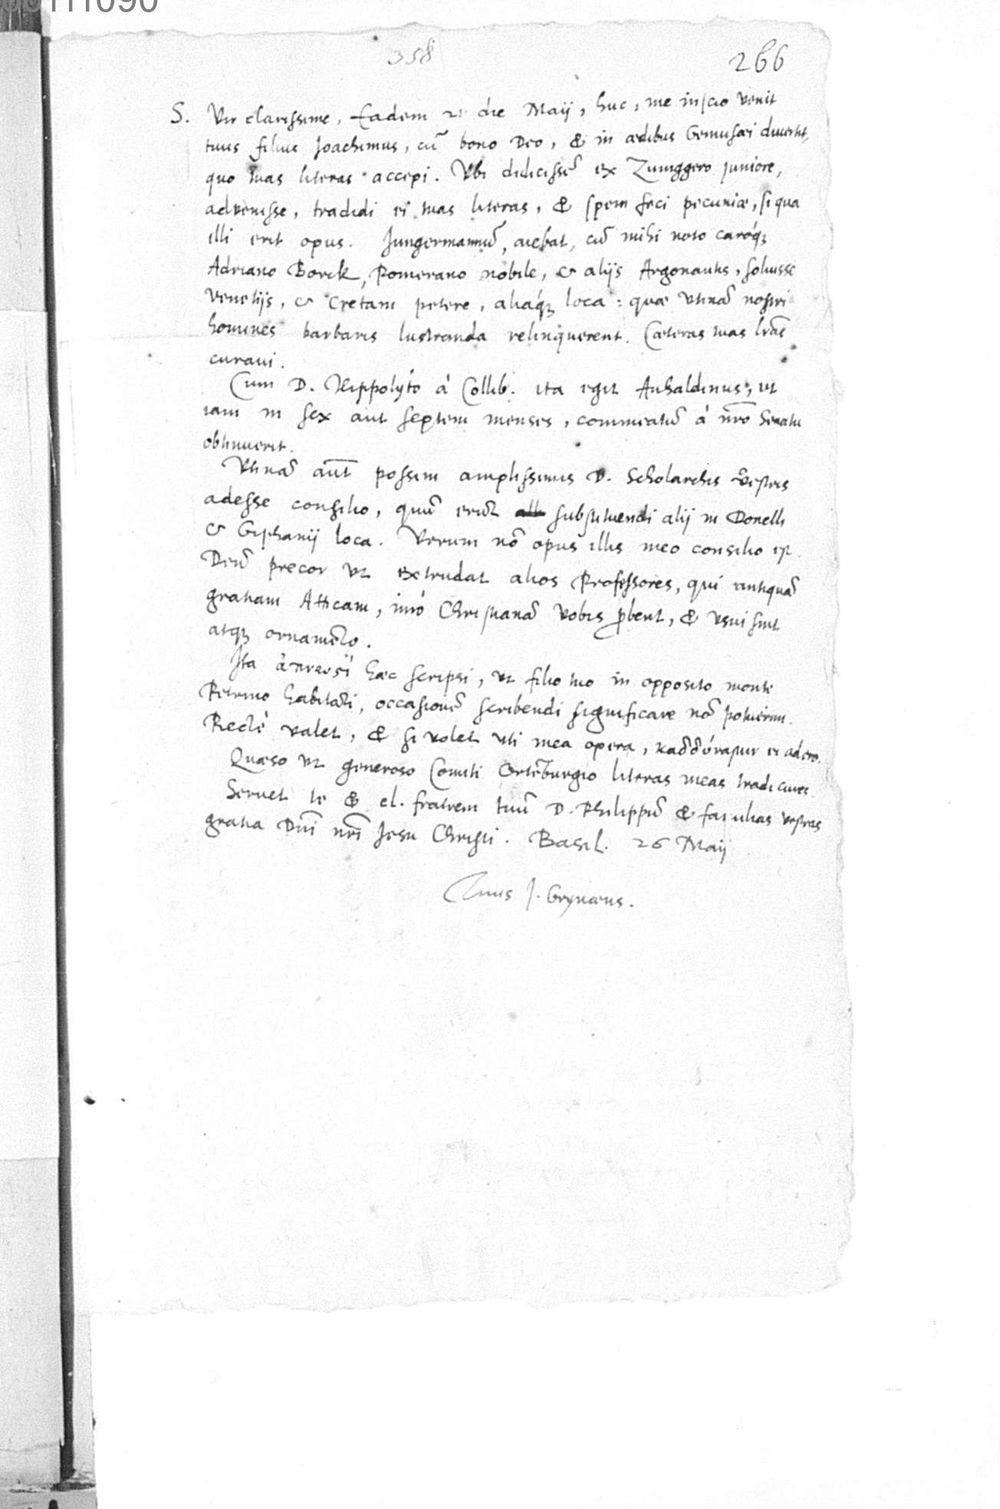 358
266
S. Vir clarissime, Eadem 21 die Maij, huc, me inscio venit
tuus filius Joachimus, cū bono Deo, & in ædibus Gemusæi divertit,
quo tuas literas accepi. Vbi didicissē ex Zuinggero juniore,
advenisse, tradidi ei tuas literas, & spem feci pecuniæ, si qua
illi erit opus. Jungermannū, aiebat, cū mihi noto caroq́
Adriano Borck, Pomerano nobile, & alijs Argonautis, soluisse
Venetijs, & Cretam petere, aliaq́ loca: quæ vtinā nostri
homines barbaris lustranda relinquerent. Cæteras tuas lrās
curavi.
Cum D. Hippolyto à Collib. ita egit Anhaldinus, vt
iam in sex aut septem menses, commeatū à nr̄o Senatu
obtinuerit.
Vtinā aūt possim amplissimis D. Scholarchis vestris
adesse consilio, quū erūt substituendi alij in Donelli
& Giphanij loca. Verum nō opus illis meo consilio est.
Deū precor vt extrudat alios Professores, qui antiquā
gratiam Atticam, imò Christianā vobis p̱bent, & vsui sint
atq́ ornamēto.
Ita haec scripsi, vt filio tuo in opposito monte
Petrino habitāti, occasionē scribendi significare nō potuerim.
Rectè valet, & si volet vti mea opera, καδδύναμιν ei adero.
Quæso vt generoso Comiti Ortēburgio literas meas tradi cures.
Servet te & cl. fratrem tuū D. Philippū & familias vestras
gratia Dn̄i nr̄i Jesu Christi. Basil. 26 Maij
Tuus J. Grynæus.